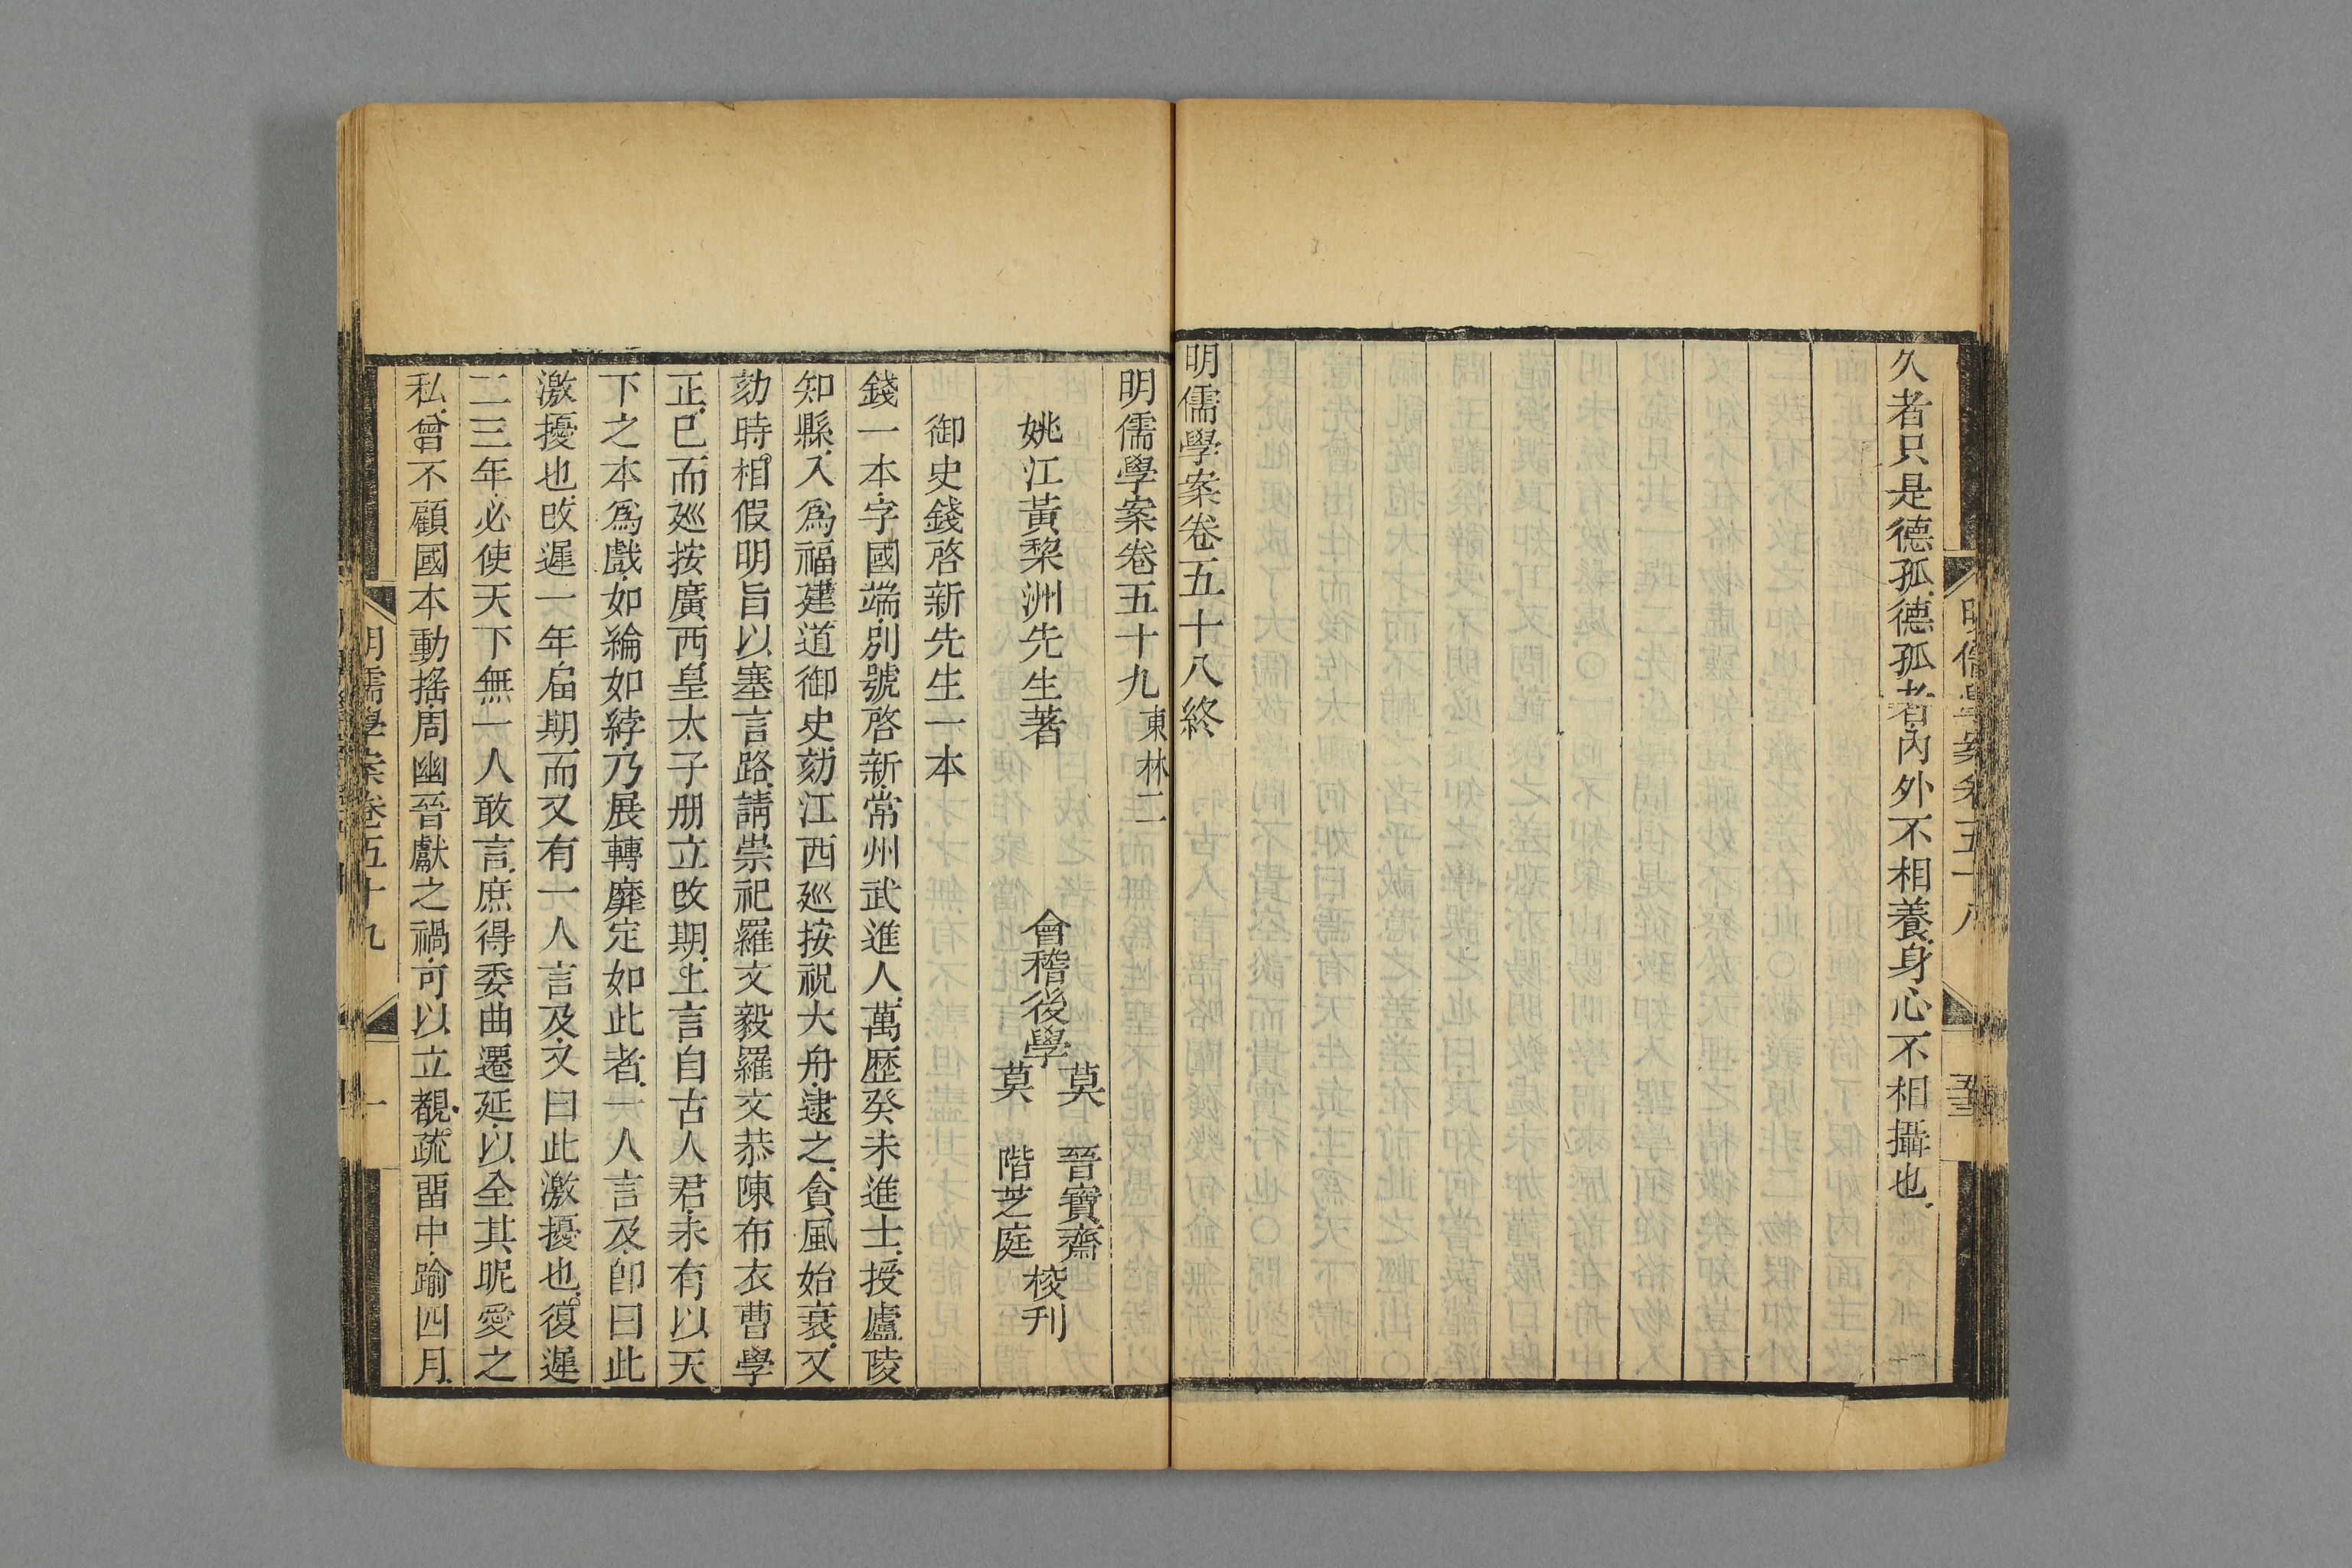 久者只是德孤德孤者內外不相養身心不相攝也
明儒學案卷五十八終
明儒學案卷五十九 東林二
姚江黃棃洲先生著
會稽後學 莫 晉寶齋 莫 階芝庭 梭刊
御史錢啓新先生一本
錢一本字國端別號啓新常州武進人萬歷癸未進士授盧陵
知縣入爲福建道御史劾江西廵按祝大舟逮之貪風始衰又
劾時相假明旨以塞言路請崇祀羅文毅羅文恭陳布衣曹學
正已而廵按廣西皇太子册立改期上言自古人君未有以天
下之本爲戲如綸如綍乃展轉靡定如此者一人言及卽曰此
激擾也改遲一年屆期而又有一人言及又曰此激擾也復遲
二三年必使天下無一人敢言庶得委曲遷延以全其昵愛之
私曾不顧國本動搖周幽晉獻之禍可以立覩疏畱中踰四月
明儒學案卷五十九 一